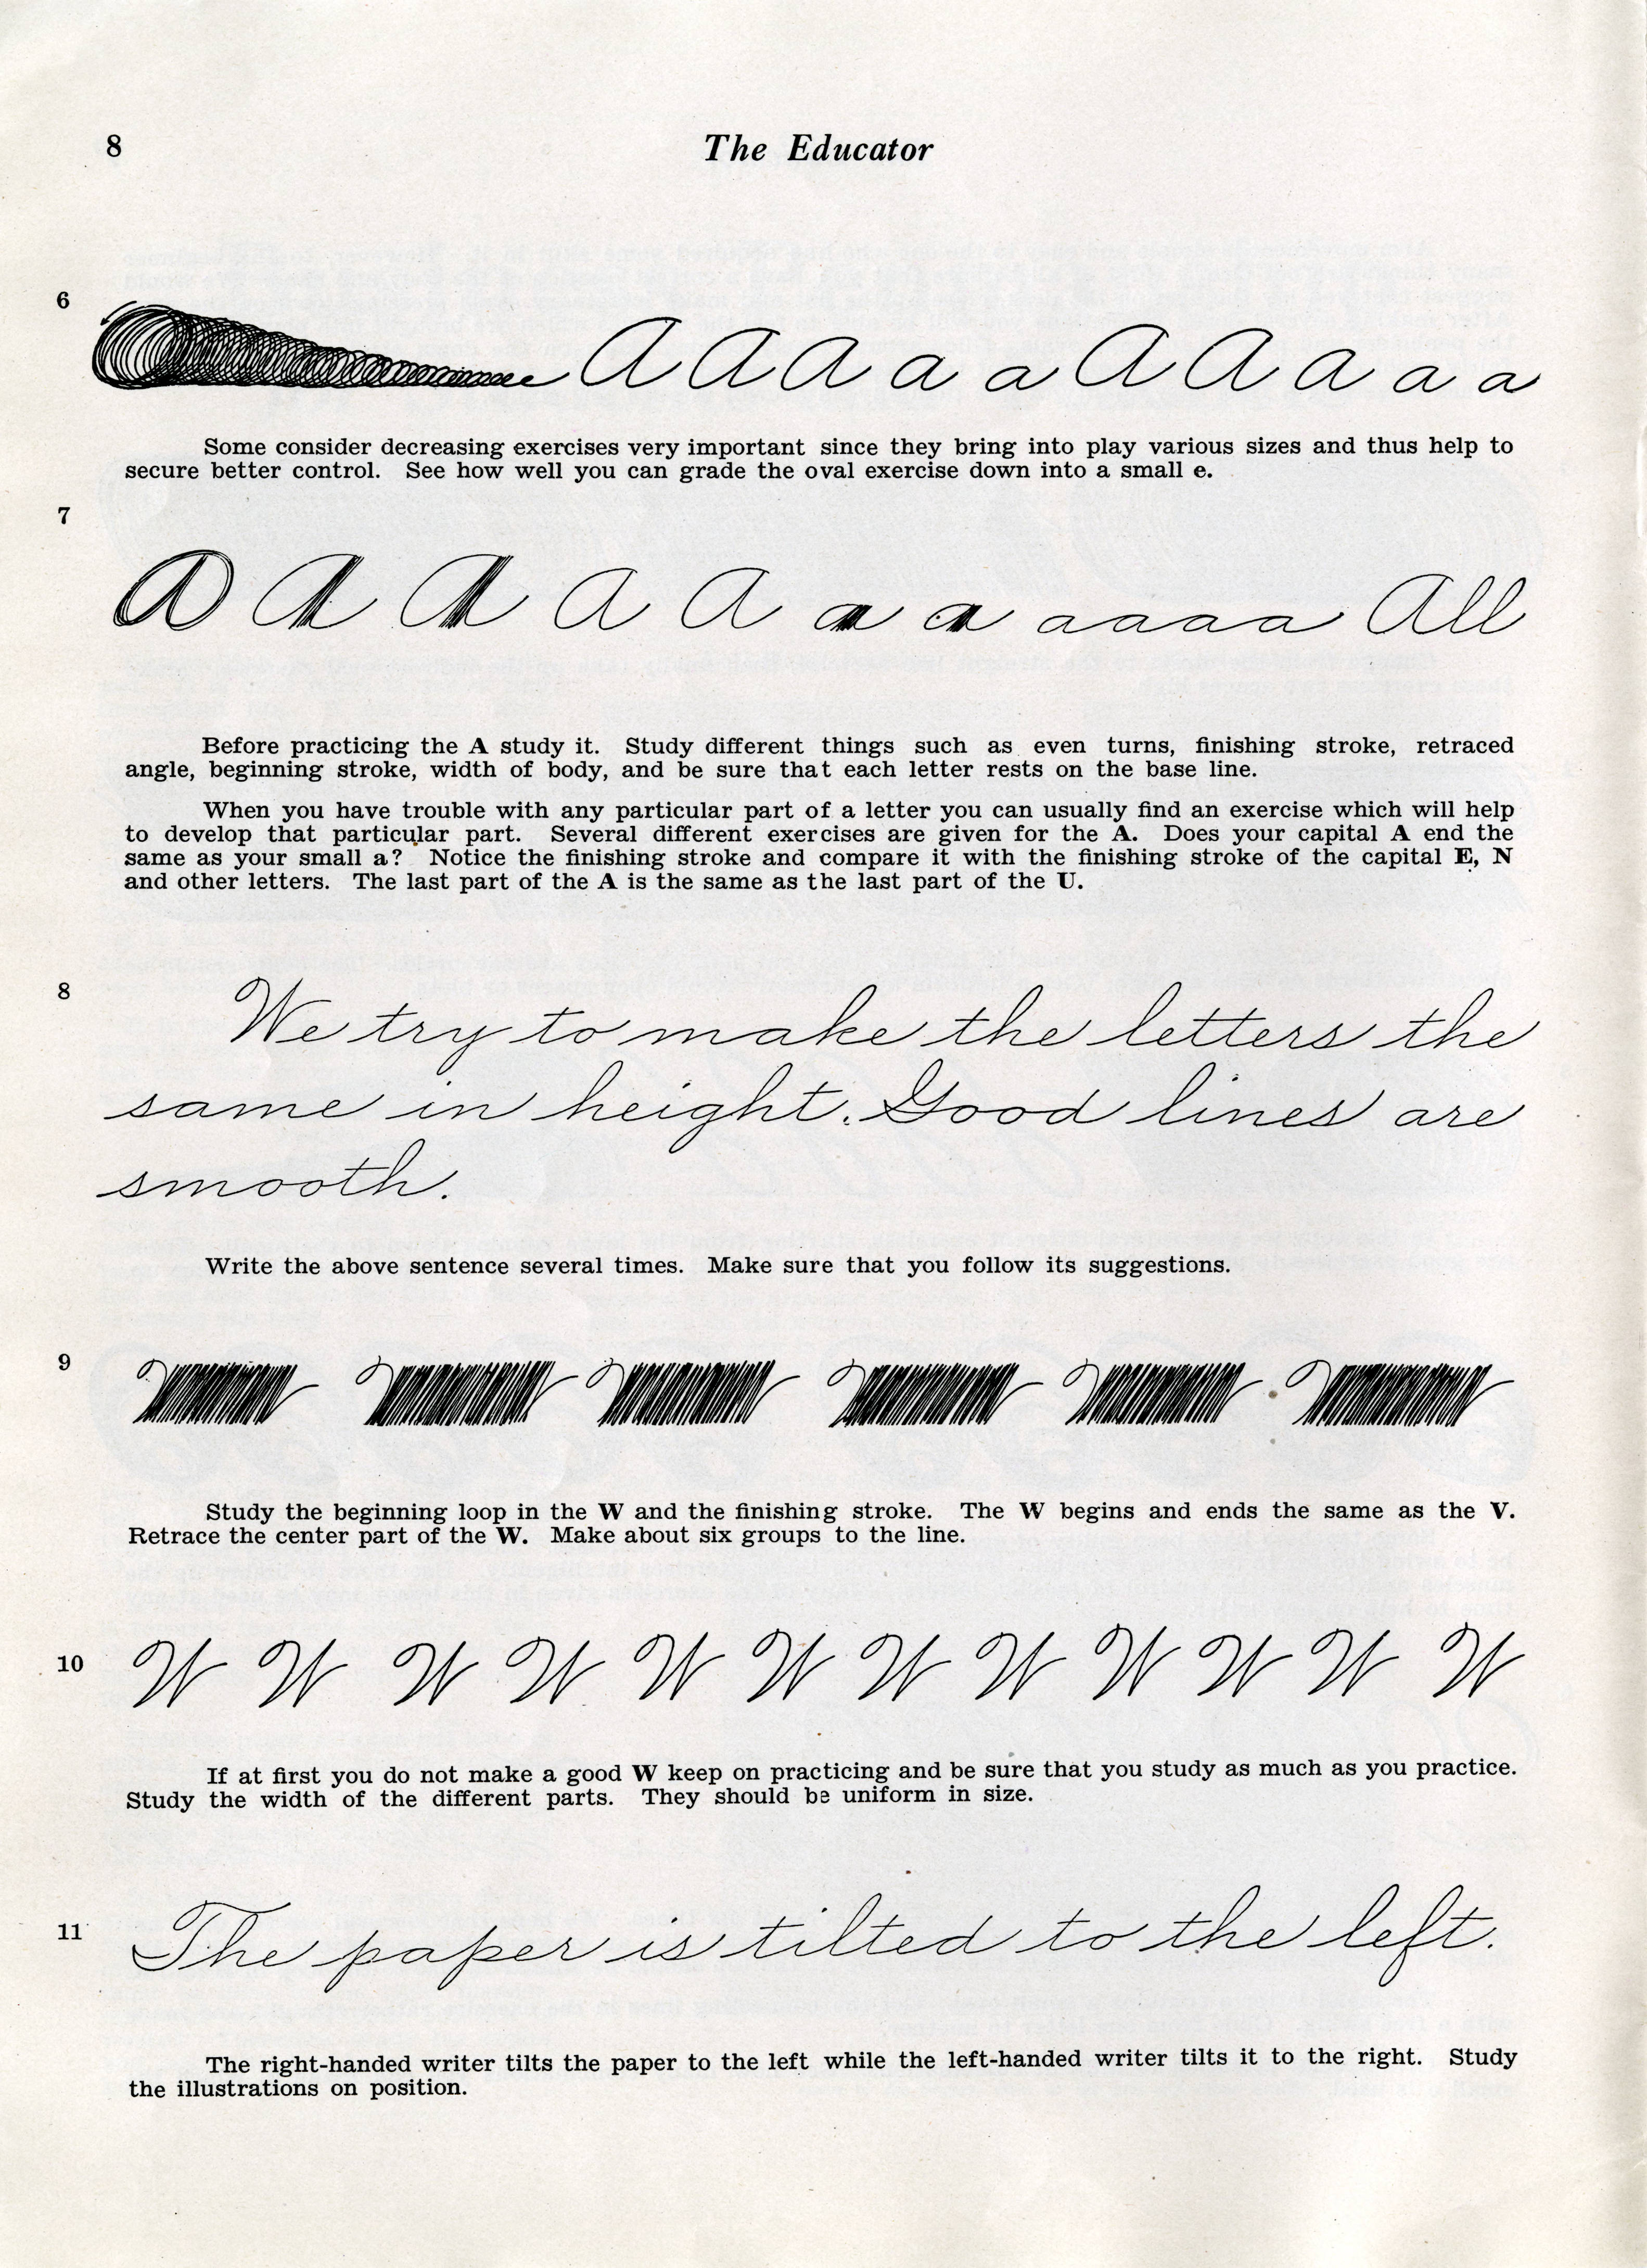 8
The Educator
6
A A A a a A A A a a
Some consider decreasing exercises very important since they bring into play various sizes and thus help to
secure better control. See how well you can grade the oval exercise down into a small e.
7
A A A A A a a aaaaa All
Before practicing the A study it. Study different things such as even turns, finishing stroke, retraced
angle, beginning stroke, width of body, and be sure that each letter rests on the base line.
When you have trouble with any particular part of a letter you can usually find an exercise which will help
to develop that particular part. Several different exercises are given for the A. Does your capital A end the
same as your small a? Notice the finishing stroke and compare it with the finishing stroke of the capital E, N
and other letters. The last part of the A is the same as the last part of the U.
8
We try to make the letters the
same in height. Good lines are
smooth.
Write the above sentence several times. Make sure that you follow its suggestions.
9
Study the beginning loop in the W and the finishing stroke. The W begins and ends the same as the V.
Retrace the center part of the W. Make about six groups to the line.
10
W W W W W W W W W W W W
If at first you do not make a good W keep on practicing and be sure that you study as much as you practice.
Study the width of the different parts. They should be uniform in size.
11
The paper is tilted to the left.
The right-handed writer tilts the paper to the left while the left-handed writer tilts it to the right. Study
the illustrations on position.